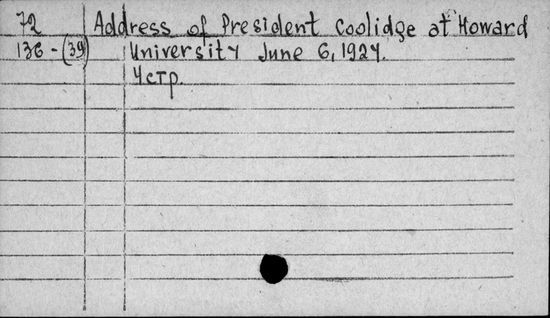 72 Address of President Coolidge at Howard
136-(39) University June 6, 1924.
4 стр.